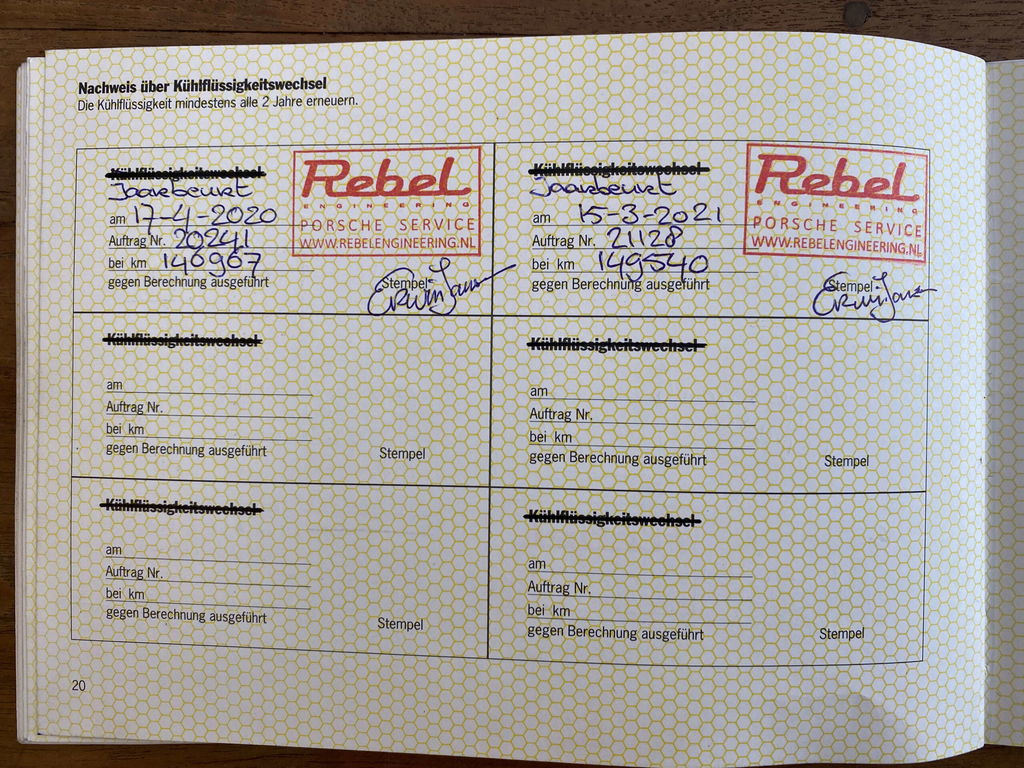 Nachweis über Kühlflüssigkeitswechsel
Die Kühlflüssigkeit mindestens alle 2 Jahre erneuern.
Kühlflüssigkeitswechsel
Jaarbeurt
am 17-4-2020
Auftrag Nr. 20241
bei km 140967
gegen Berechnung ausgeführt
Stempel
Erwin Jans
Rebel
ENGINEERING
PORSCHE SERVICE
WWW.REBELENGINEERING.NL
Kühlflüssigkeitswechsel
Jaarbeurt
am 15-3-2021
Auftrag Nr. 21128
bei km 149540
gegen Berechnung ausgeführt
Stempel
Erwin Jans
Rebel
ENGINEERING
PORSCHE SERVICE
WWW.REBELENGINEERING.NL
Kühlflüssigkeitswechsel
am
Auftrag Nr.
bei km
gegen Berechnung ausgeführt
Stempel
Kühlflüssigkeitswechsel
am
Auftrag Nr.
bei km
gegen Berechnung ausgeführt
Stempel
Kühlflüssigkeitswechsel
am
Auftrag Nr.
bei km
gegen Berechnung ausgeführt
Stempel
Kühlflüssigkeitswechsel
am
Auftrag Nr.
bei km
gegen Berechnung ausgeführt
Stempel
20